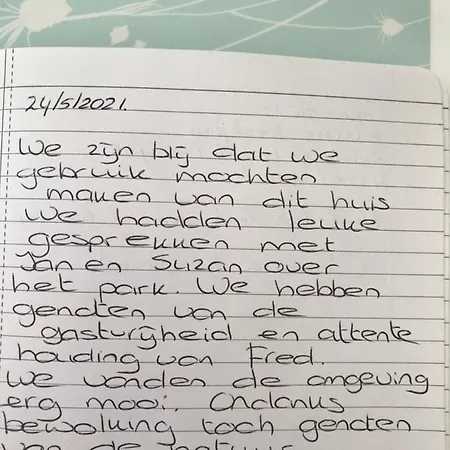 24/5/2021.
We zijn blij dat we
gebruik mochten
maken van dit huis
We hadden leuke
gesprekken met
Jan en Suzan over
het park. We hebben
genoten van de
gastvrijheid en attente
houding van Fred.
We vonden de omgeving
erg mooi. Ondanks
bewolking toch genoten
van de natuur